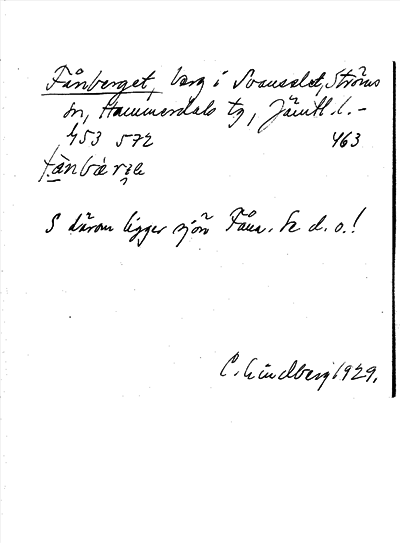 Fånberget, berg i Svanselet, Ströms
sn, Hammerdals tg, Jämtl. l. –
453 572 463
S därom ligger sjön Fåna. Se d. o.!
C. Lindberg 1929.